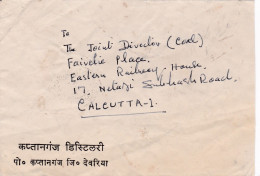 To
The Joint Director (Coal)
Fairlie Place.
Eastern Railway House.
17, Netaji Subhash Road.
CALCUTTA-1.
कप्तानगंज डिस्टिलरी
पो० कप्तानगंज जि० देवरिया